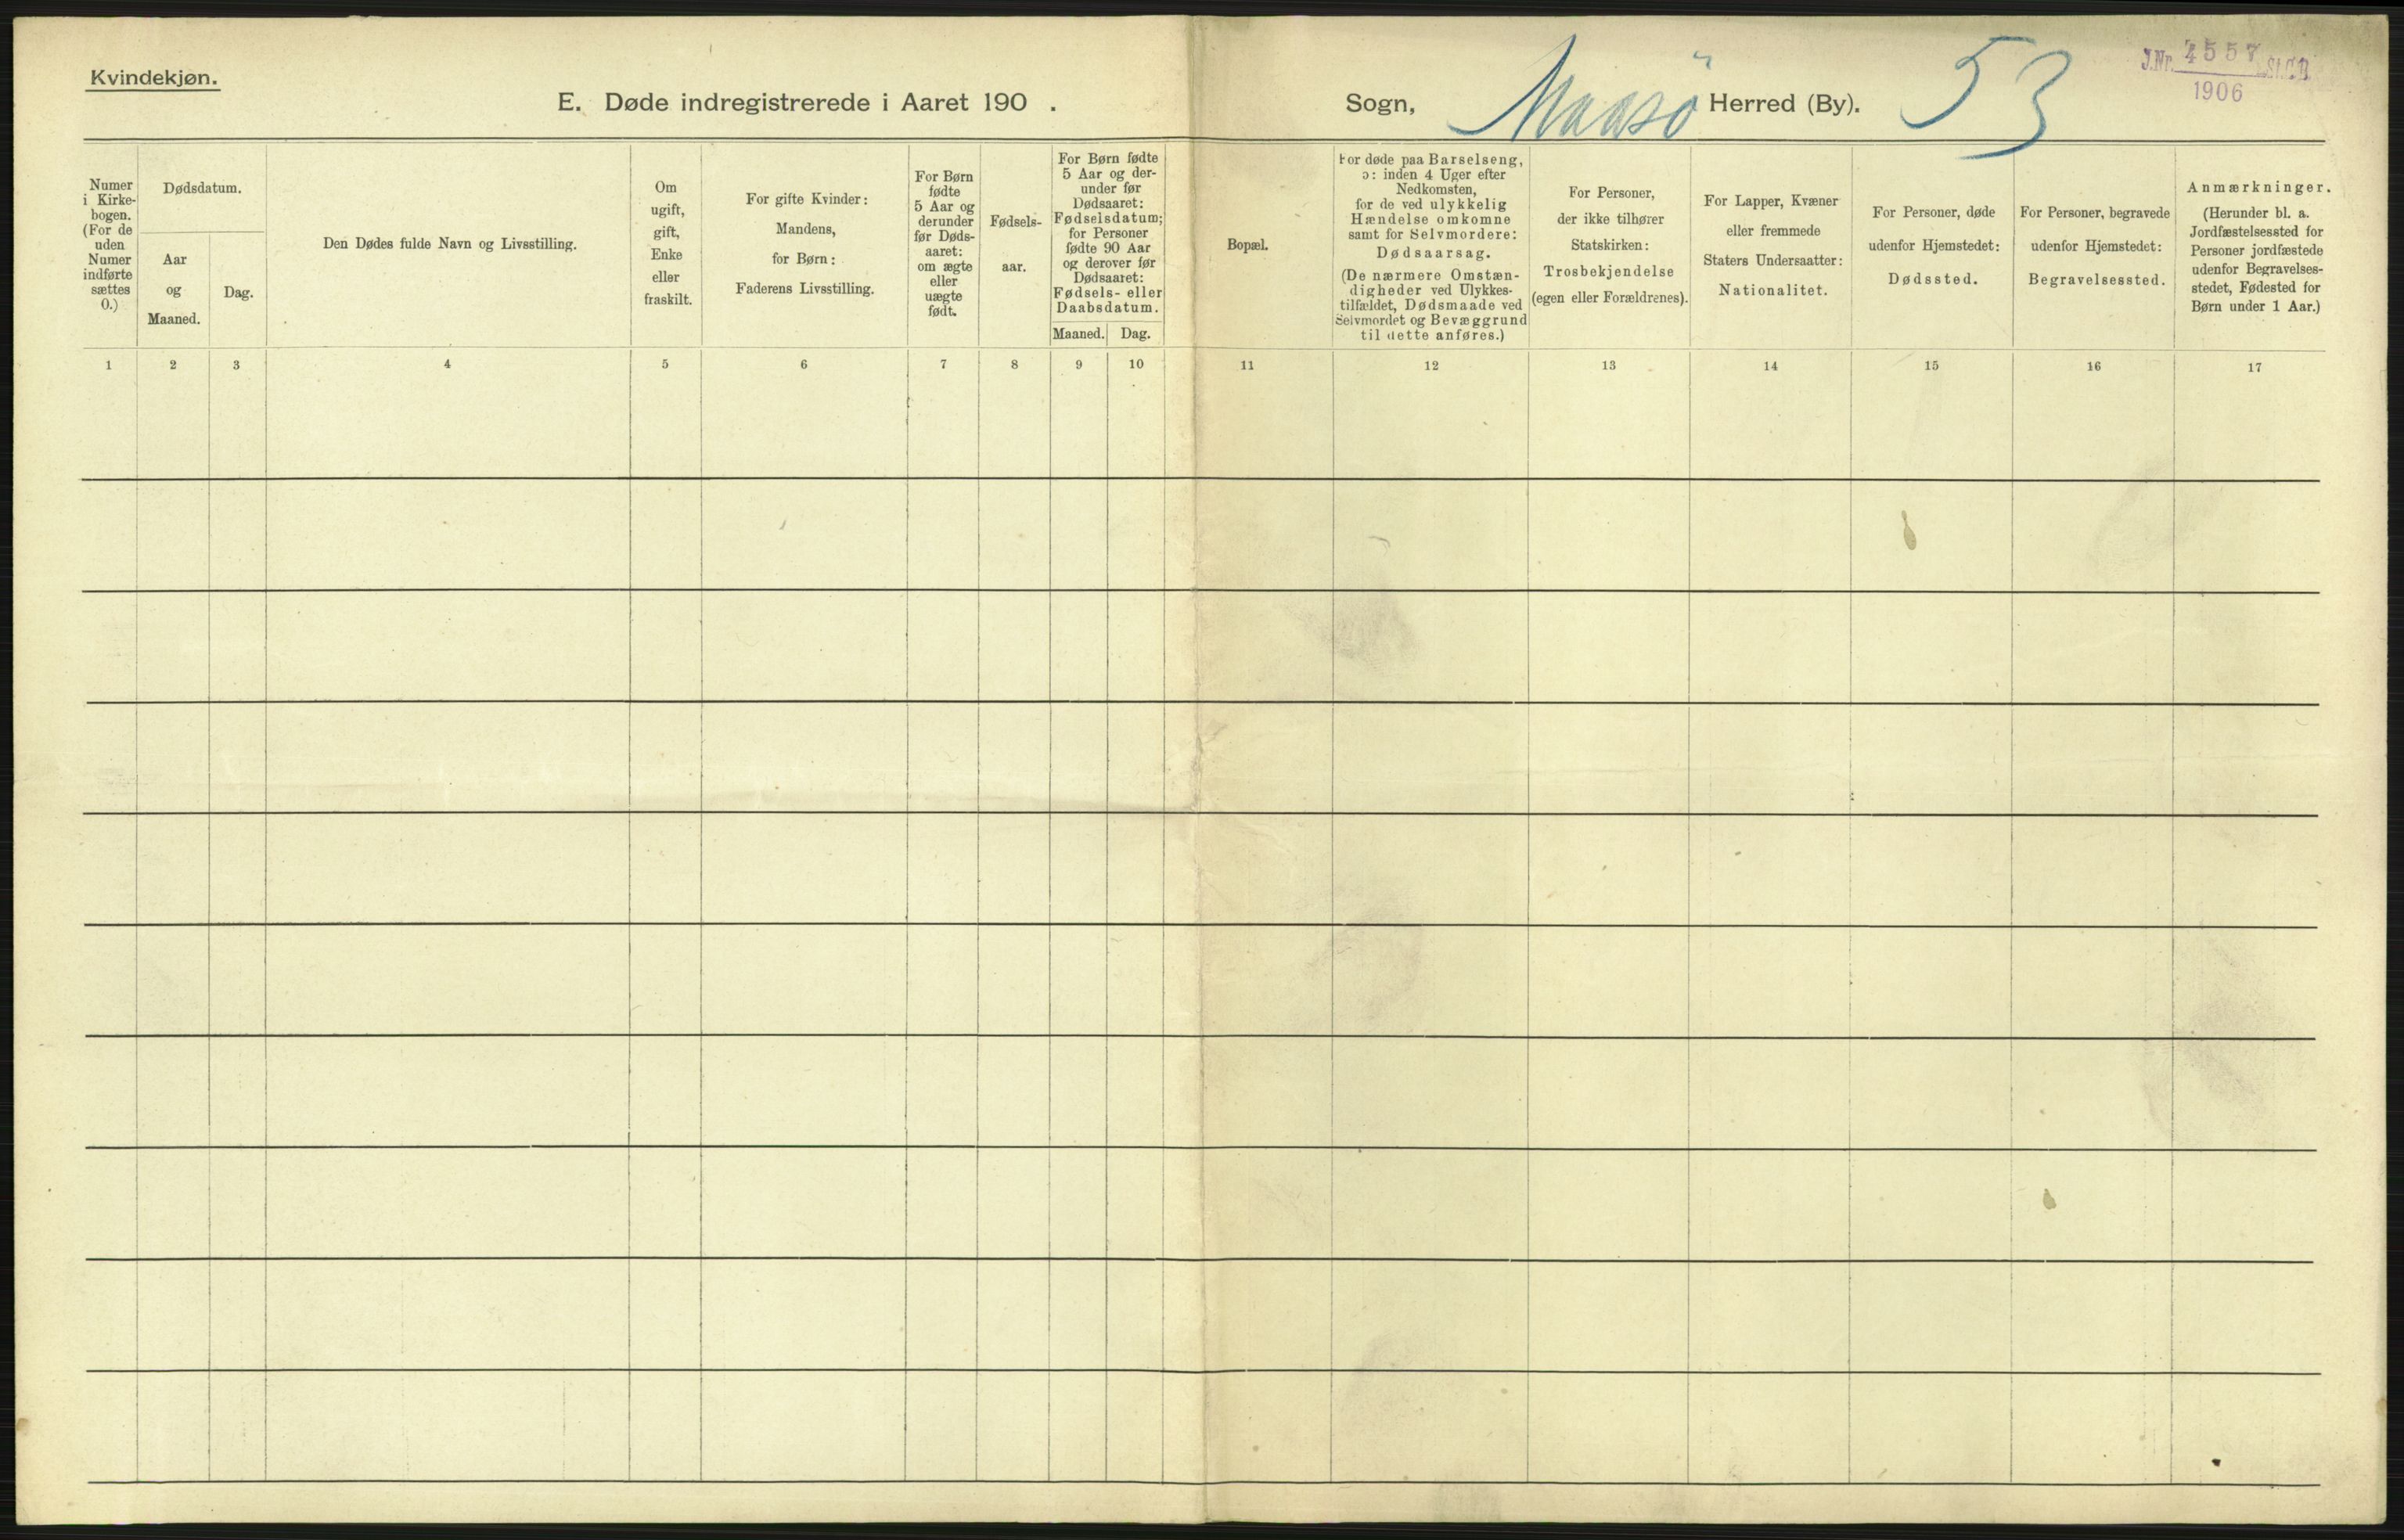 Kvindekjøn.
E. Døde indregistrerede i Aaret 190 . Sogn, Maasö Herred (By). 53
J.Nr. 4557 St.C.B.
1906
Numer
i Kirke-
bogen.
(For de
uden
Numer
indførte
sættes
0.)
Dødsdatum.
Aar
og
Maaned.
Dag.
Den Dødes fulde Navn og Livsstilling.
Om
ugift,
gift,
Enke
eller
fraskilt.
For gifte Kvinder:
Mandens,
for Børn:
Faderens Livsstilling.
For Børn
fødte
5 Aar og
derunder
før Døds-
aaret:
om ægte
eller
uægte
født.
Fødsels-
aar.
For Børn fødte
5 Aar og der-
under før
Dødsaaret:
Fødselsdatum;
for Personer
fødte 90 Aar
og derover før
Dødsaaret:
Fødsels- eller
Daabsdatum.
Maaned. Dag.
Bopæl.
For døde paa Barselseng,
ɔ: inden 4 Uger efter
Nedkomsten,
for de ved ulykkelig
Hændelse omkomne
samt for Selvmordere:
Dødsaarsag.
(De nærmere Omstæn-
digheder ved Ulykkes-
tilfældet, Dødsmaade ved
Selvmordet og Bevæggrund
til dette anføres.)
For Personer,
der ikke tilhører
Statskirken:
Trosbekjendelse
(egen eller Forældrenes).
For Lapper, Kvæner
eller fremmede
Staters Undersaatter:
Nationalitet.
For Personer, døde
udenfor Hjemstedet:
Dødssted.
For Personer, begravede
udenfor Hjemstedet:
Begravelsessted.
Anmærkninger.
(Herunder bl. a.
Jordfæstelsessted for
Personer jordfæstede
udenfor Begravelses-
stedet, Fødested for
Børn under 1 Aar.)
1 2 3 4 5 6 7 8 9 10 11 12 13 14 15 16 17